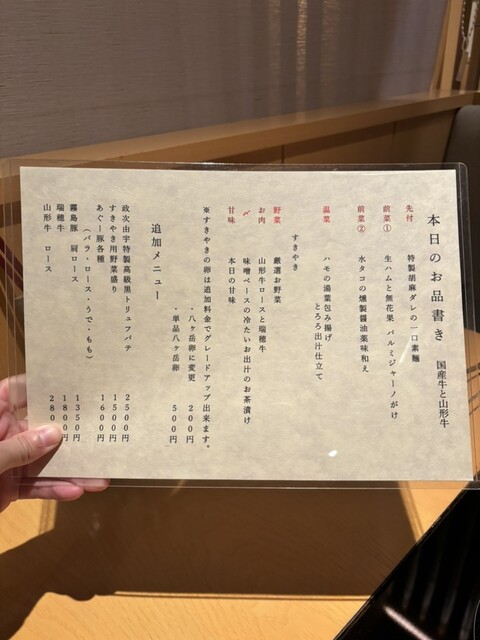 本日のお品書き 国産牛と山形牛
先付 特製胡麻ダレの一口素麺
前菜① 生ハムと無花果 パルミジャーノがけ
前菜② 水タコの燻製醤油薬味和え
温菜 ハモの湯葉包み揚げ
とろろ出汁仕立て
すきやき
野菜 厳選お野菜
お肉 山形牛ロースと瑞穂牛
〆 味噌ベースの冷たいお出汁のお茶漬け
甘味 本日の甘味
※すきやきの卵は追加料金でグレードアップ出来ます。
・八ヶ岳卵に変更 200円
・単品八ヶ岳卵 500円
追加メニュー
政次由宇特製高級黒トリュフパテ 2500円
すきやき用野菜盛り 1500円
あぐー豚各種 1600円
（バラ・ロース・うで・もも）
霧島豚 肩ロース 1350円
瑞穂牛 1800円
山形牛 ロース 280